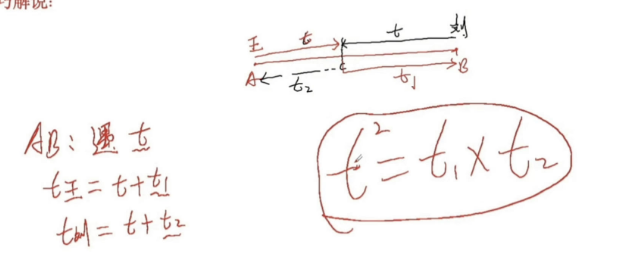 巧解说:
王 t t 刘
A t₂ C t₁ B
AB: 遇 t
t王 = t + t₁
t刘 = t + t₂
t² = t₁ × t₂